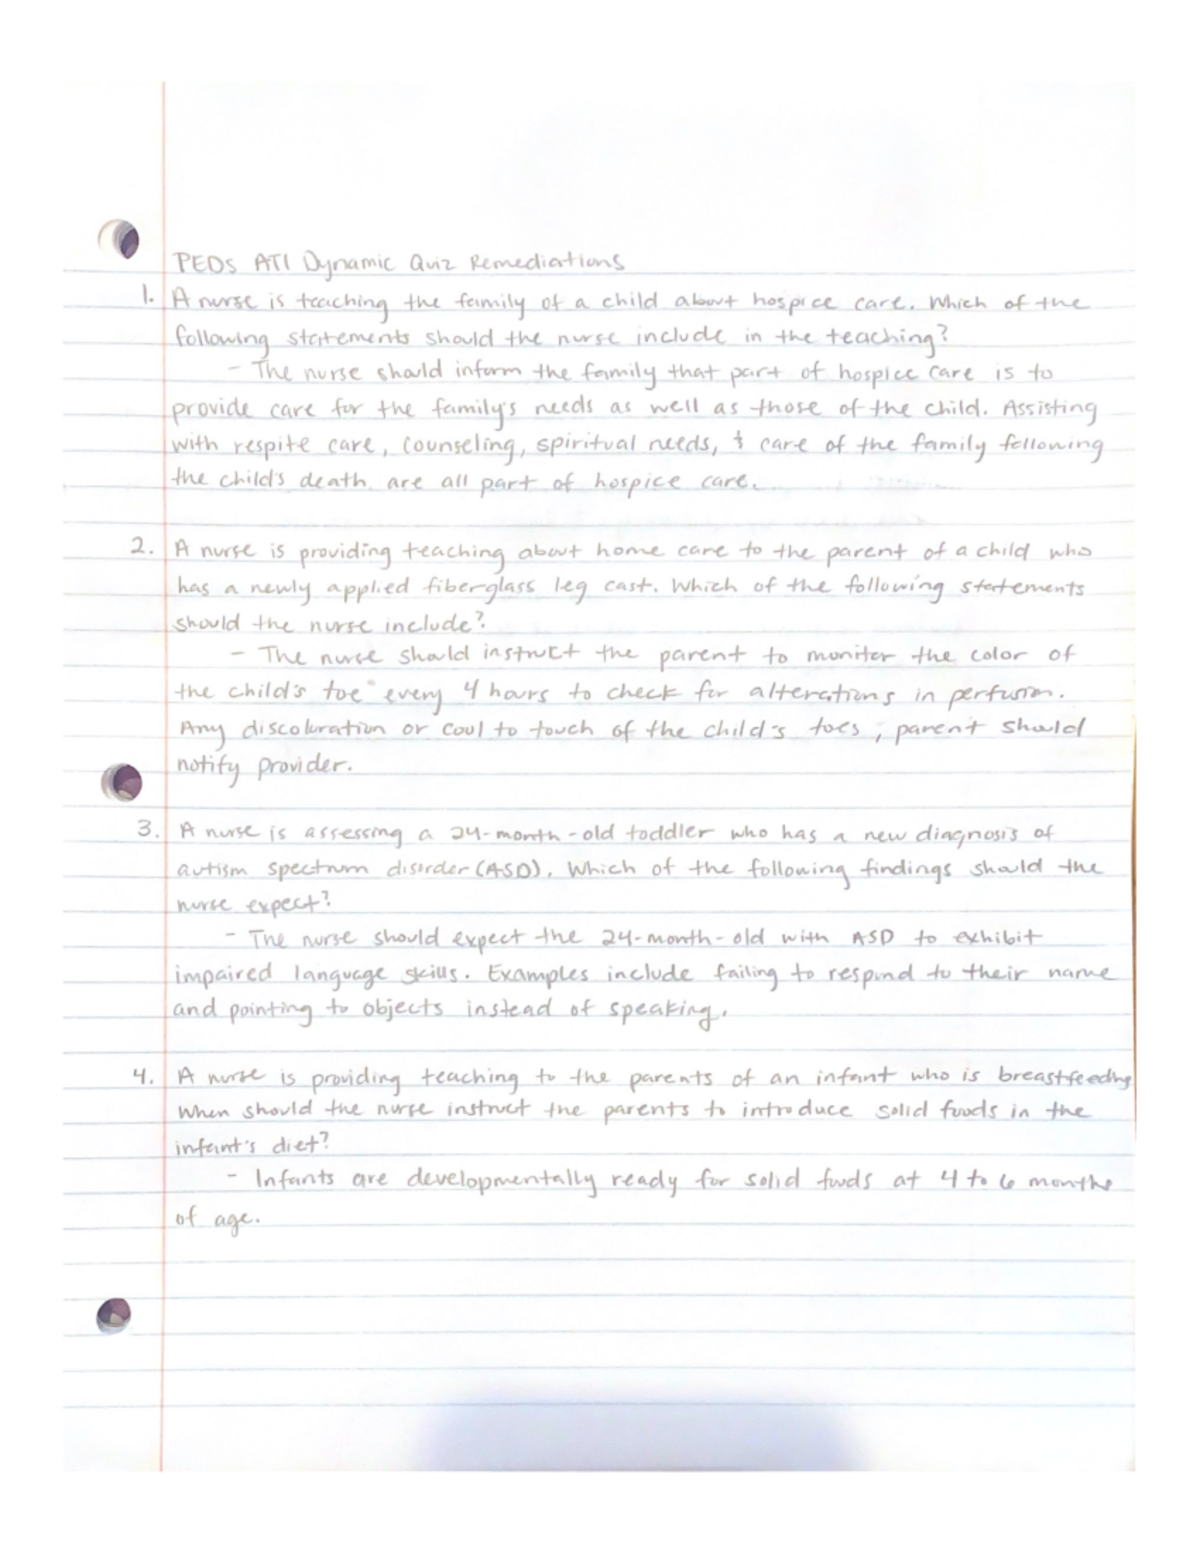 PEDs ATI Dynamic Quiz Remediations
1. A nurse is teaching the family of a child about hospice care. Which of the
following statements should the nurse include in the teaching?
- The nurse should inform the family that part of hospice care is to
provide care for the family's needs as well as those of the child. Assisting
with respite care, counseling, spiritual needs, & care of the family following
the child's death are all part of hospice care.
2. A nurse is providing teaching about home care to the parent of a child who
has a newly applied fiberglass leg cast. Which of the following statements
should the nurse include?
- The nurse should instruct the parent to monitor the color of
the child's toe every 4 hours to check for alterations in perfusion.
Any discoloration or cool to touch of the child's toes, parent should
notify provider.
3. A nurse is assessing a 24-month-old toddler who has a new diagnosis of
autism spectrum disorder (ASD). Which of the following findings should the
nurse expect?
- The nurse should expect the 24-month-old with ASD to exhibit
impaired language skills. Examples include failing to respond to their name
and pointing to objects instead of speaking.
4. A nurse is providing teaching to the parents of an infant who is breastfeeding
When should the nurse instruct the parents to introduce solid foods in the
infant's diet?
- Infants are developmentally ready for solid foods at 4 to 6 months
of age.